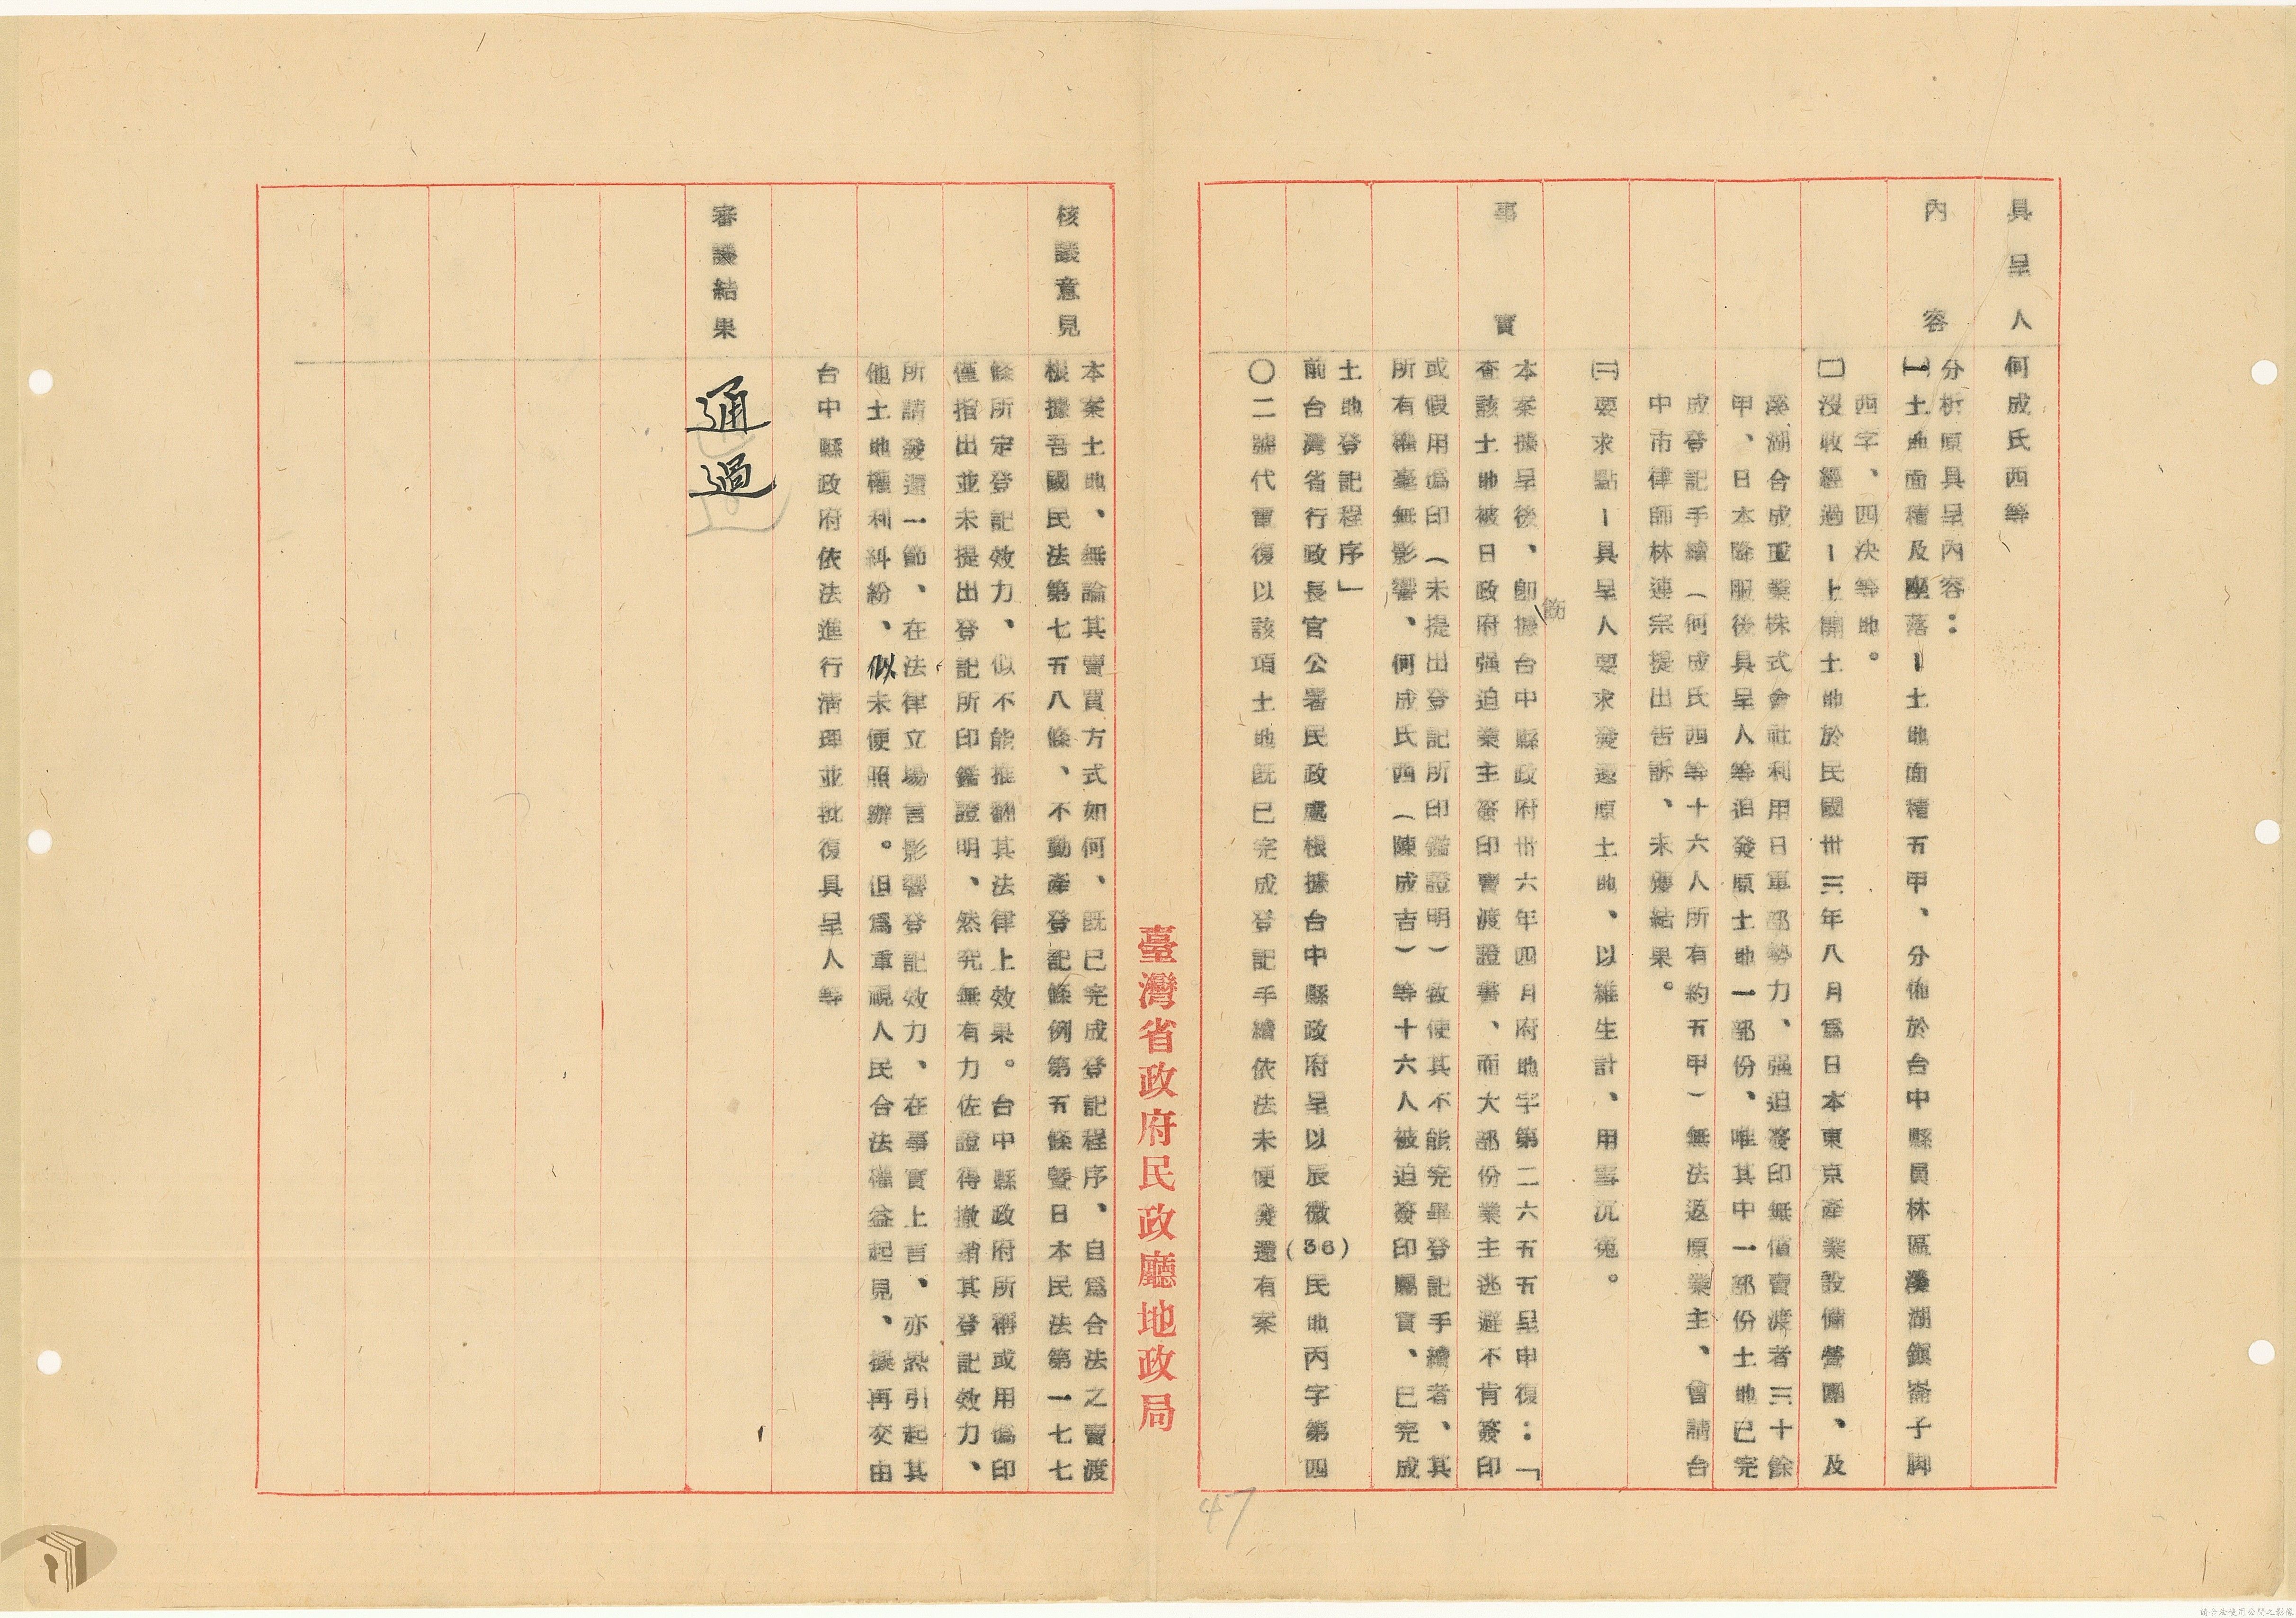 具呈人
何成氏西等
內容
分析原具呈內容：
㈠土地面積及座落－土地面積五甲、分佈於台中縣員林區溪湖鎮崙子脚
西字、四決等地。
㈡沒收經過－上開土地於民國卅三年八月爲日本東京產業設備營團、及
溪湖合成工業株式會社利用日軍部勢力、强迫簽印無價賣渡者三十餘
甲、日本降服後具呈人等迫發原土地一部份、唯其中一部份土地已完
成登記手續（何成氏西等十六人所有約五甲）無法返原業主、曾請台
中市律師林連宗提出告訴、未獲結果。
㈢要求點－具呈人要求發還原土地、以維生計、用雪沉寃。
事實
本案據呈後、卽據台中縣政府卅六年四月府地字第二六五五呈申復：「
飭
查該土地被日政府强迫業主簽印賣渡證書、而大部份業主逃避不肯簽印
或假用僞印（未提出登記所印鑑證明）致使其不能完畢登記手續者、其
所有權毫無影響、何成氏西（陳成吉）等十六人被迫簽印屬實、已完成
土地登記程序」
前台灣省行政長官公署民政處根據台中縣政府呈以辰微(36)民地丙字第四
〇二號代電復以該項土地既已完成登記手續依法未便發還有案
臺灣省政府民政廳地政局
核議意見
本案土地、無論其賣買方式如何、既已完成登記程序、自爲合法之賣渡
根據吾國民法第七五八條、不動產登記條例第五條曁日本民法第一七七
條所定登記效力、似不能推翻其法律上效果。台中縣政府所稱或用僞印
僅指出並未提出登記所印鑑證明、然究無有力佐證得撤銷其登記效力、
所請發還一節、在法律立場言影響登記效力、在事實上言、亦恐引起其
他土地權利糾紛、似未便照辦。但爲重視人民合法權益起見、擬再交由
台中縣政府依法進行淸理並批復具呈人等
審議結果
通過
47
請合法使用公開之影像